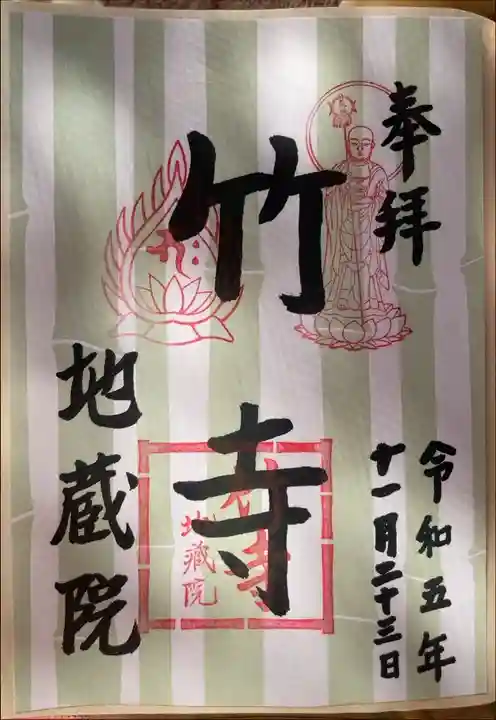 奉拝
令和五年
十一月二十三日
竹寺
竹寺
地蔵院
地蔵院